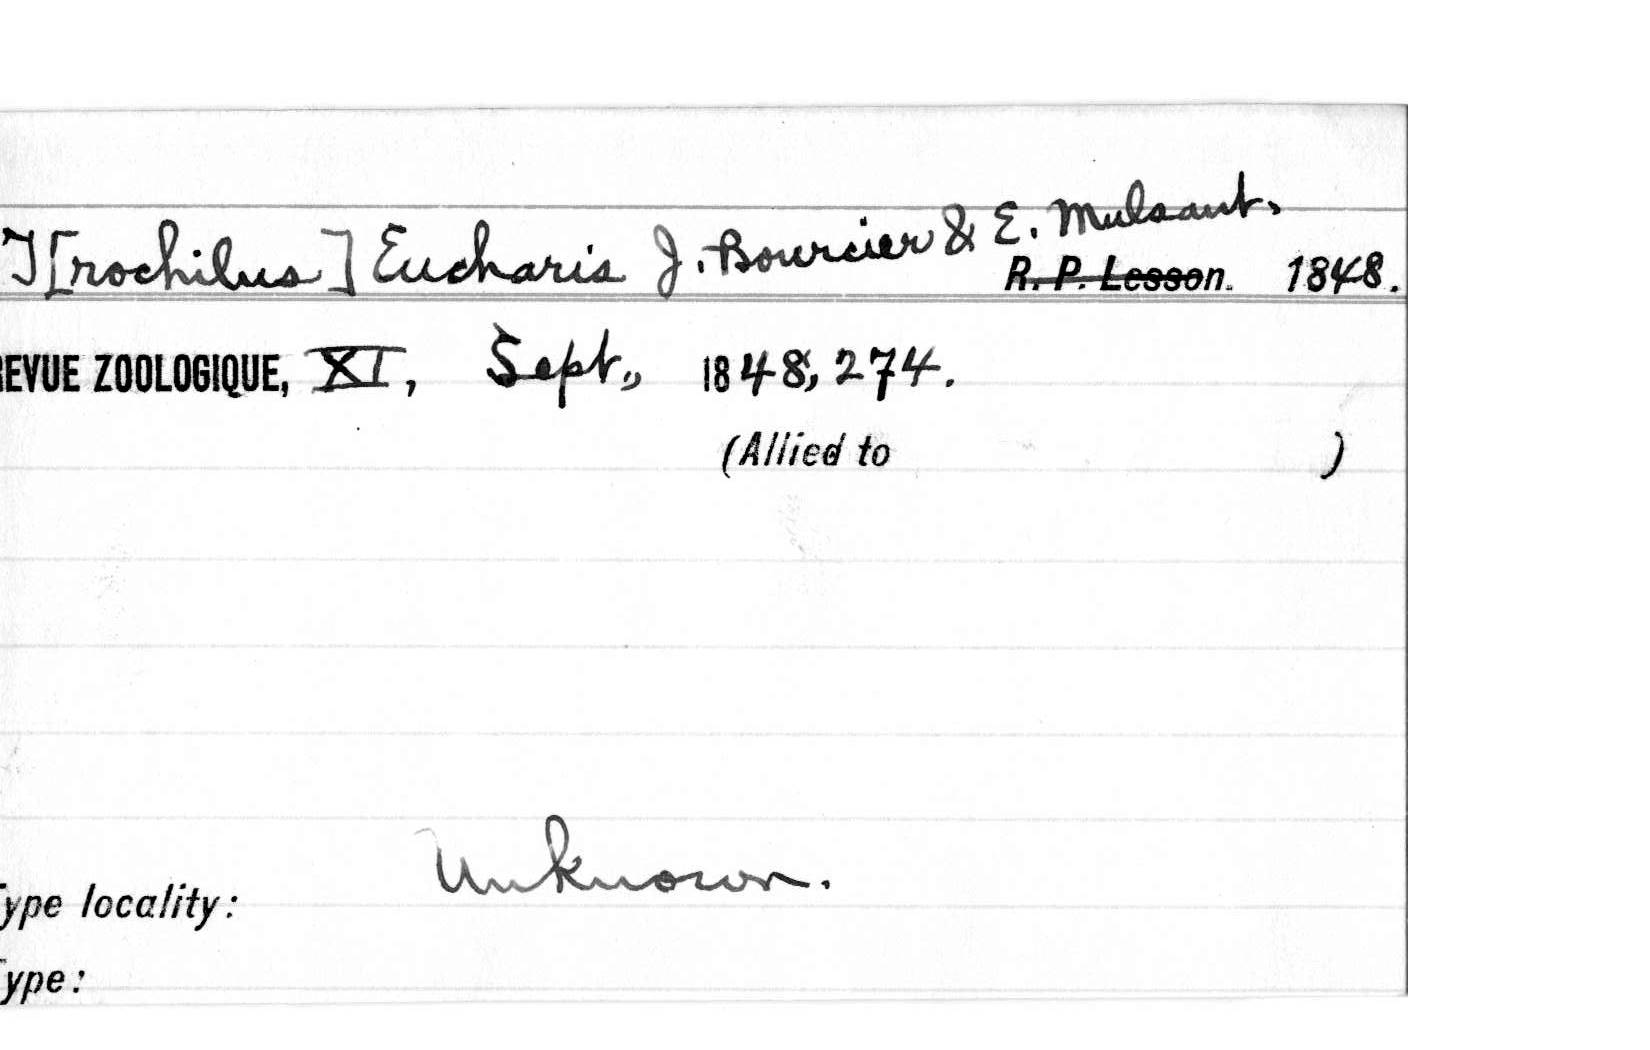 T[rochilus] Eucharis J. Bourcier & E. Mulsant.
R. P. Lesson. 1848.
REVUE ZOOLOGIQUE, XI, Sept., 1848, 274.
(Allied to )
Unknown.
Type locality:
Type: